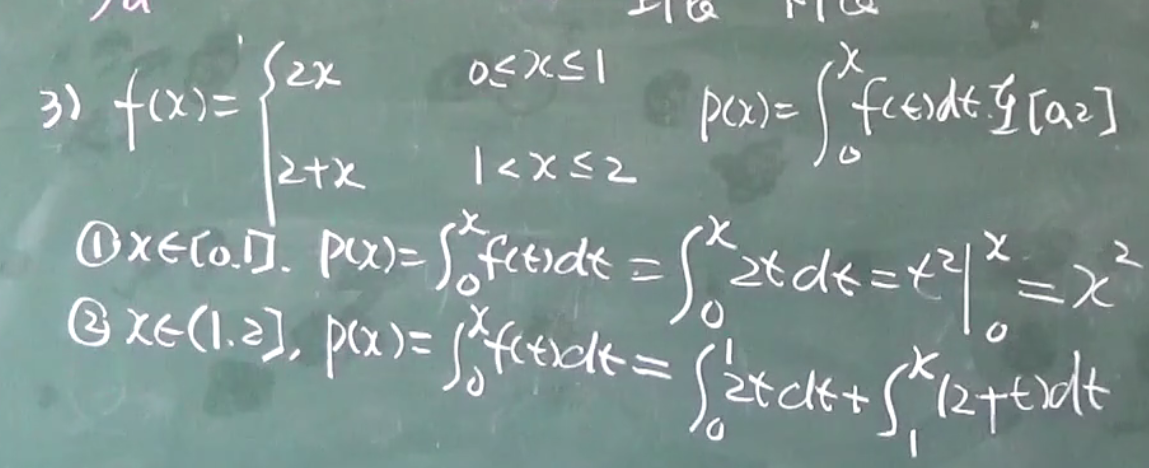 3) f(x)={2x 0≤x≤1 p(x)=∫₀ˣf(t)dt.在[0,2]
2+x 1<x≤2
①x∈[0.1]. p(x)=∫₀ˣf(t)dt=∫₀ˣ2tdt=t²|₀ˣ=x²
②x∈(1.2], p(x)=∫₀ˣf(t)dt=∫₀¹2tdt+∫₁ˣ(2+t)dt